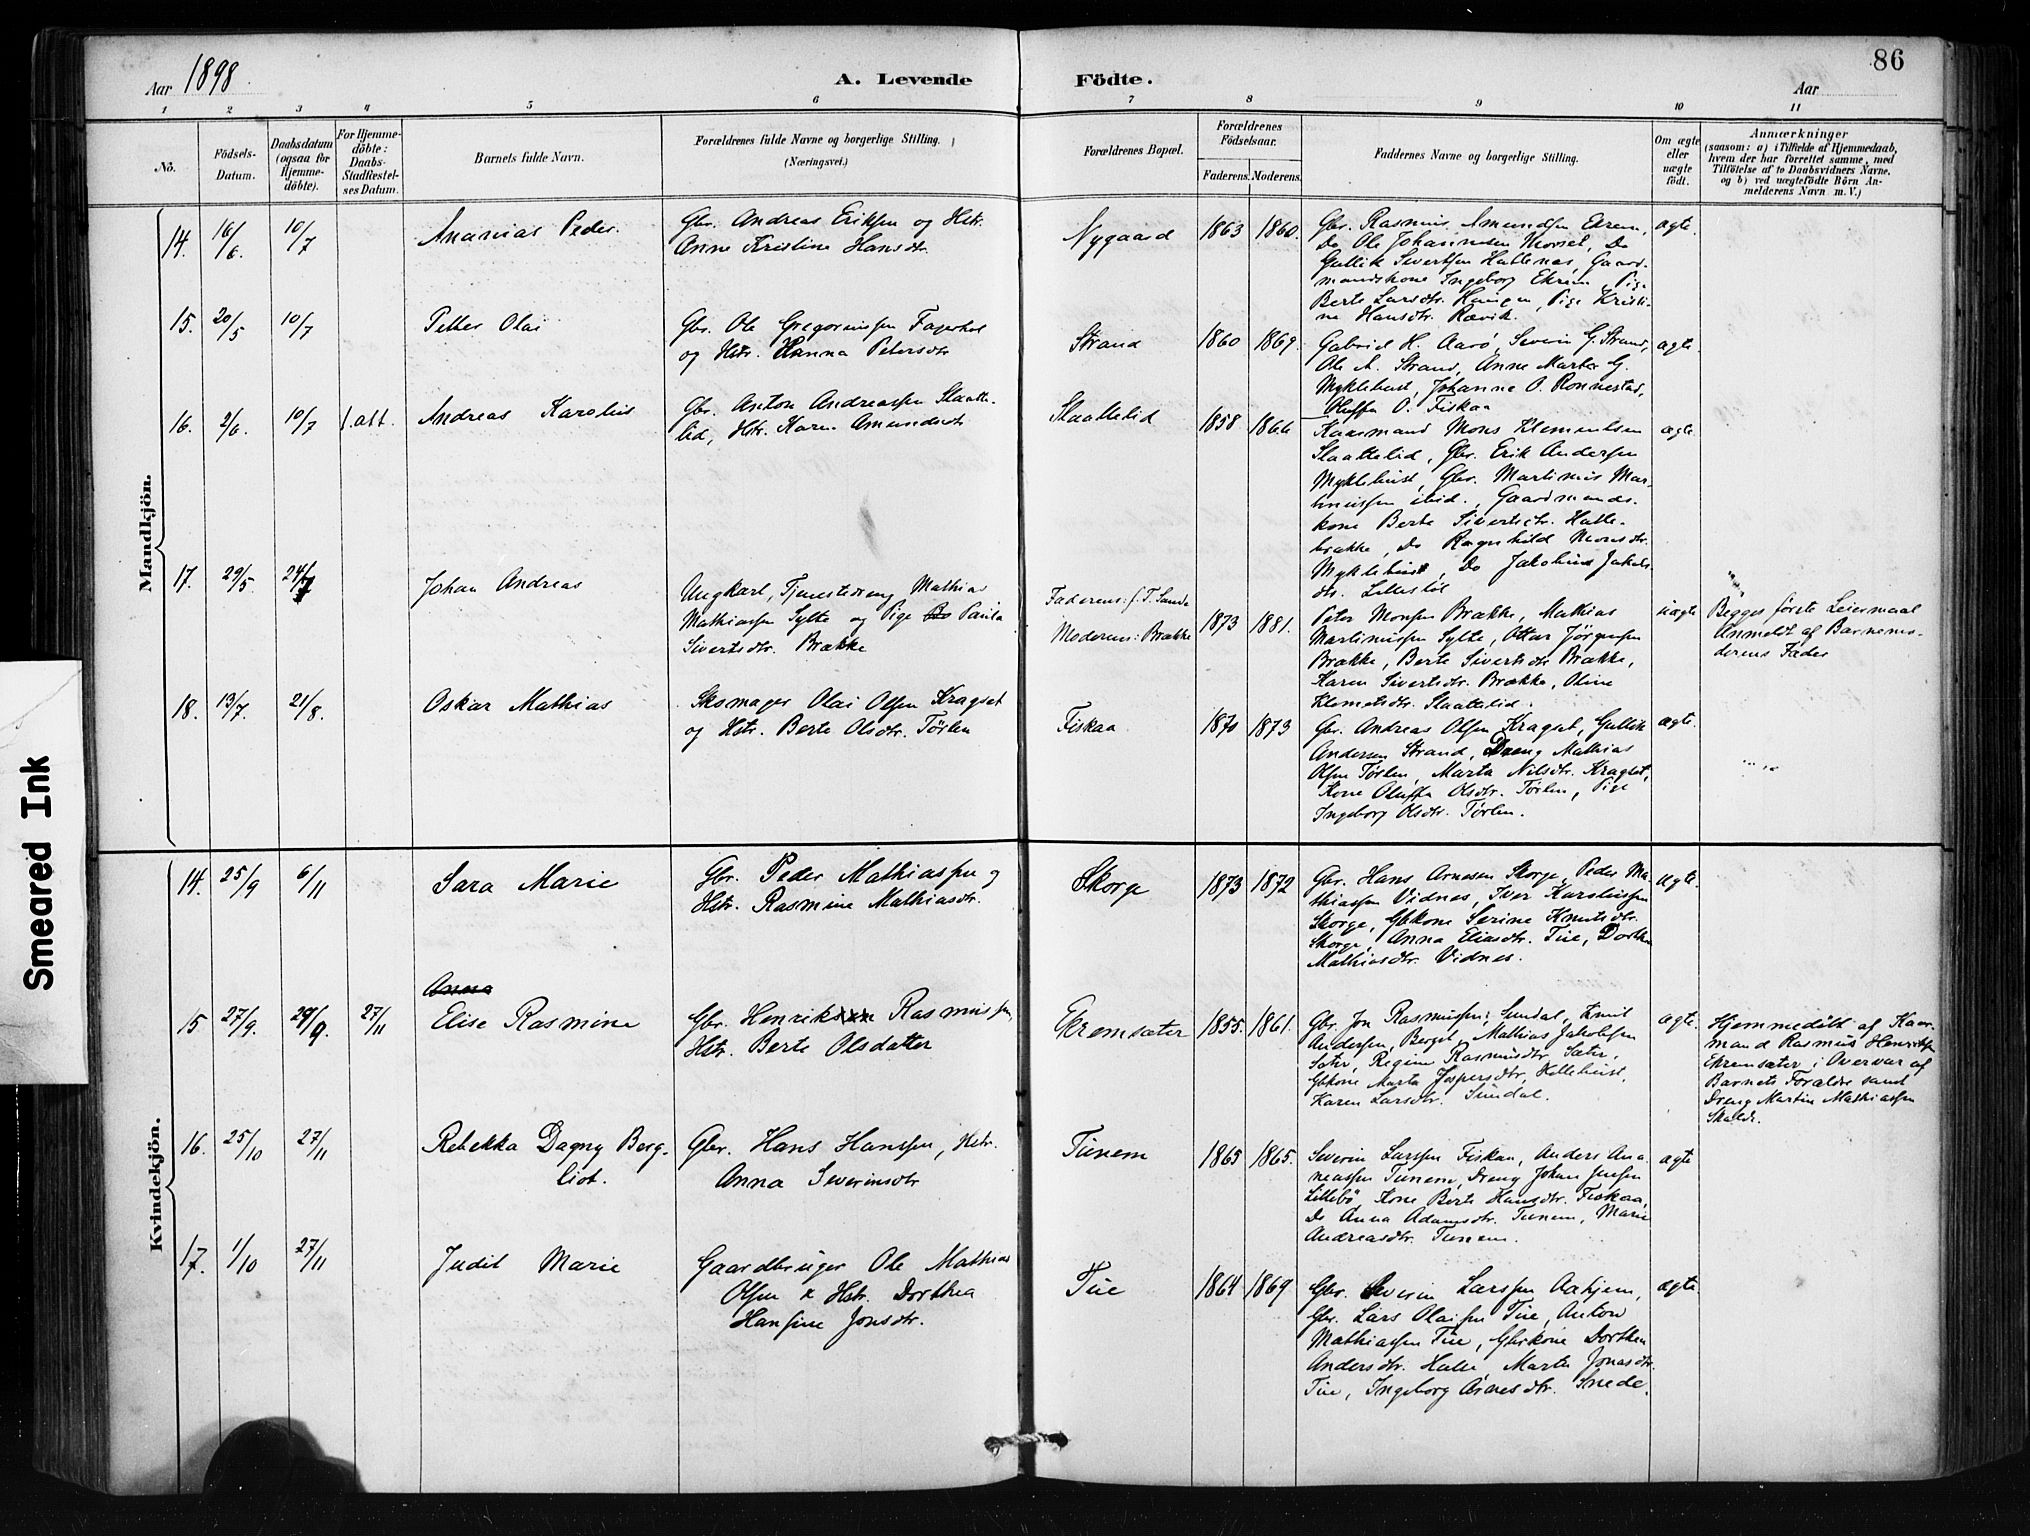 86
Aar 1898
A. Levende Födte.
Aar
1 2 3 4 5 6 7 8 9 10 11
No.
Födsels-
Datum.
Daabsdatum
(ogsaa for
Hjemme-
döbte).
For Hjemme-
döbte:
Daabs-
Stadfæstel-
ses Datum.
Barnets fulde Navn.
Forældrenes fulde Navne og borgerlige Stilling.
(Næringsvei.)
Forældrenes Bopæl.
Forældrenes
Födselsaar.
Faderens. Moderens.
Faddernes Navne og borgerlige Stilling.
Om ægte
eller
uægte
födt.
Anmærkninger
(saasom: a) i Tilfælde af Hjemmedaab,
hvem der har forrettet samme, med
Tilföielse af to Daabsvidners Navne,
og b) ved uægtefödte Börn An-
melderens Navn m. V.)
Mandkjön.
14. 16/6. 10/7 Ananias Peder.
Gbr. Andreas Eriksen og Hstr.
Anne Kristine Hansdtr.
Nygaard 1863 1860.
Gbr. Rasmus Amundsen Ekrem,
Do Ole Johannesen Morset, Do
Gullik Sivertsen Hattenes, Gaard-
mandskone Ingeborg Ekrem, Pige
Berte Larsdtr. Haugen, Pige Kristi-
ne Hansdtr. Rævik.
ægte.
15. 20/5 10/7 Petter Olai
Gbr. Ole Gregoriussen Fagerhol
og Hstr. Hanna Petersdtr
Strand 1860 1869.
Gabriel H. Aarö, Severin G. Strand,
Ole A. Strand, Anne Marta G.
Myklebust, Johanne O. Rönnestad,
Oluffa O. Fiskaa
ægte.
16. 2/6. 10/7 f. att. Andreas Karolius
Gbr. Anton Andreassen Slaatte-
lid, Hstr. Karen Amundsdtr
Slaattelid 1858 1866
Kaarmand Mons Klemetsen
Slaattelid, Gbr. Erik Andersen
Myklebust, Gbr. Martinus Mar-
tinussen ibid., Gaardmands-
kone Berte Sivertsdtr. Halle-
brække, Do Ragnhild Monsdtr.
Myklebust, Do Jakobine Jakobs-
dtr. Lillestöl
ægte
17. 29/5. 24/7 Johan Andreas
Ungkarl, Tjenestedreng Mathias
Mathiassen Sylte og Pige Paula
Sivertsdtr. Brække
Faderens: f. T. Sande
Moderens: Brække
1873 1881.
Peter Monsen Brække, Mathias
Martinussen Sylte, Ottar Jörgensen
Brække, Berte Sivertsdtr Brække,
Karen Sivertsdtr. Brække, Oline
Klemetsdtr. Slaattelid.
uægte
Begges förste Leiermaal
Anmeldt af Barnemo-
derens Fader
18. 13/7. 21/8. Oskar Mathias
Skomager Olai Olsen Kragset
og Hstr. Berte Olsdtr. Törlen
Fiskaa 1870 1873
Gbr. Andreas Olsen Kragset, Gullik
Andersen Strand, Dreng Mathias
Olsen Törlen, Marta Nilsdtr. Kragset,
Kone Oluffa Olsdtr. Törlen, Pige
Ingeborg Olsdtr. Törlen.
ægte.
Kvindekjön.
14. 25/9 6/11 Sara Marie
Gbr. Peder Mathiassen og
Hstr. Rasmine Mathiasdtr.
Skorge 1873 1872
Gbr. Hans Arnesen Skorge, Peder Ma-
thiassen Vidnes, Iver Karolussen
Skorge, Gbkone Serine Knutsdtr.
Skorge, Anna Eliasdtr. Tue, Dorthea
Mathiasdtr. Vidnes.
ægte.
Anna
15 27/9. 29/9. 27/11 Elise Rasmine
Gbr. Henrik Rasmussen,
Hstr. Berte Olsdatter
Ekremsæter 1855. 1861.
Gbr. Jon Rasmussen, Sundal, Knut
Andersen, Berget, Mathias Jakobsen
Sæter, Regine Rasmusdtr. Sæter,
Gbkone Marta Jespersdtr, Hellebust,
Karen Larsdtr. Sundal.
ægte.
Hjemmedöbt af Kaar-
mand Rasmus Henriksen
Ekremsæter i Overvær af
Barnets Forældre samt
Dreng Martin Mathiassen
16. 25/10 27/11 Rebekka Dagny Berg-
liot.
Gbr. Hans Hanssen, Hstr.
Anna Severinsdtr
Tunem 1865 1865.
Severin Larssen Fiskaa, Anders Ana-
neassen Tunem, Dreng Johan Jensen
Lillebö, Kone Berte Hansdtr. Fiskaa,
Do Anna Adamsdtr. Tunem, Marie
Andreasdtr. Tunem.
ægte
17. 1/10 27/11 Judit Marie
Gaardbruger Ole Mathias
Olsen & Hstr. Dorthea
Hansine Jonsdtr.
Tue 1864 1869
Gbr. Severin Larssen Aahjem,
Gbr. Lars Olaisen Tue, Anton
Mathiassen Tue, Gbrkone Dorthea
Andersdtr. Halle, Marta Jonasdtr.
Tue, Ingeborg Arnesdtr. Snede.
ægte
Smeared Ink